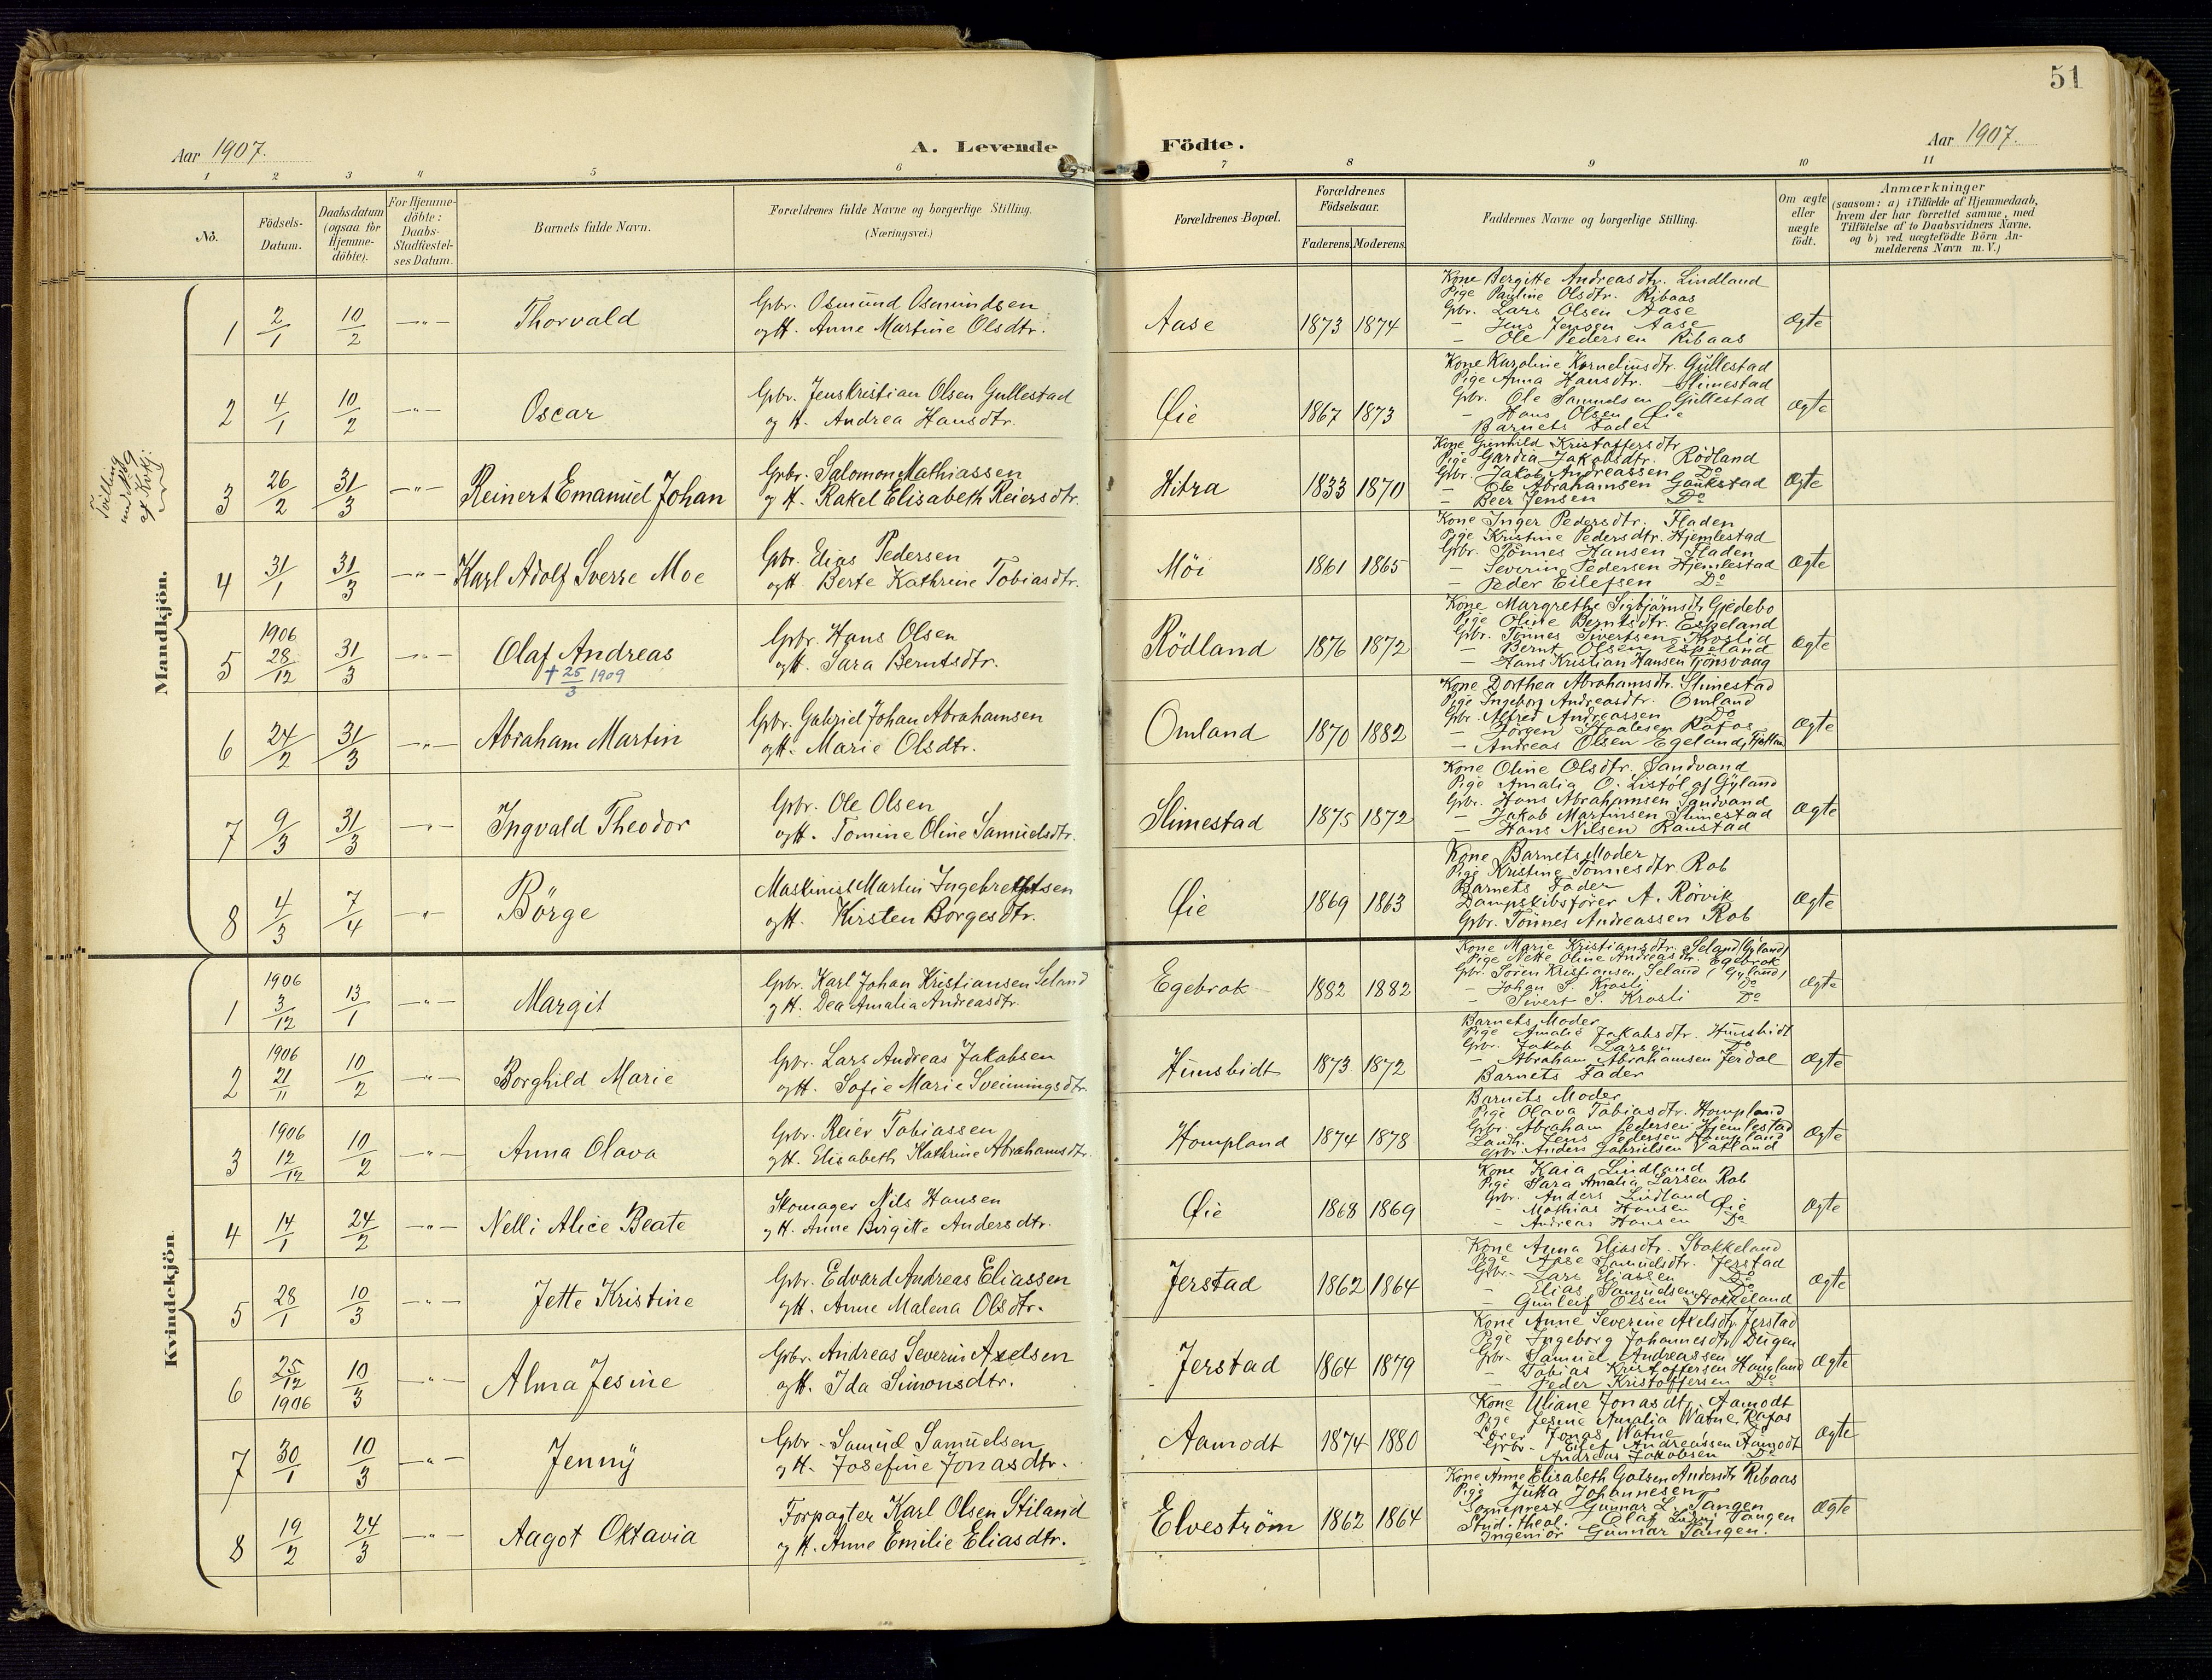 51
Aar 1907.
A. Levende
Födte.
Aar 1907.
1 2 3 4 5 6 7 8 9 10 11
No.
Födsels-Datum.
Daabsdatum (ogsaa for Hjemme-döbte).
For Hjemme-döbte: Daabs-Stadfæstel-ses Datum.
Barnets fulde Navn.
Forældrenes fulde Navne og borgerlige Stilling.
(Næringsvei.)
Forældrenes Bopæl.
Forældrenes Födselsaar.
Faderens. Moderens.
Faddernes Navne og borgerlige Stilling.
Om ægte eller uægte födt.
Anmærkninger
(saasom: a) i Tilfælde af Hjemmedaab,
hvem der har forrettet samme, med
Tilföielse af to Daabsvidners Navne.
og b) ved uægtefödte Börn An-
melderens Navn m. V.)
Mandkjön.
1 2/1 10/2 —"— Thorvald
Gbr. Osmund Osmundsen
og H. Anne Martine Olsdtr.
Aase 1873 1874
Kone Bergitte Andreasdtr. Lindland
Pige Pauline Olsdtr. Ribaas
Gbr. Lars Olsen Aase
— Jens Jensen Aase
— Ole Pedersen Ribaas
Ægte
2 4/1 10/2 —"— Oscar
Gbr. Jens Kristian Olsen Gullestad
og H. Andrea Hansdtr.
Øie 1867 1873
Kone Karoline Korneliusdtr. Gullestad
Pige Anna Hansdtr. Slimestad
Gbr. Ole Samuelsen Gullestad
— Hans Olsen Øie
Barnets Fader
Ægte
Tvilling
af Kvkj:
3 26/2 31/3 —"— Reinert Emanuel Johan
Gbr. Salomon Mathiassen
og H. Rakel Elisabeth Reiersdtr.
Hitra 1833 1870
Kone Gunhild Kristoffersdtr
Pige Gardia Jakobsdtr. Rödland
Gbr. Jakob Andreassen Do
— Ole Abrahamsen Gaukstad
— Beer Jensen Do
Ægte
4 31/1 31/3 —"— Karl Adolf Sverre Moe
Gbr. Elias Pedersen
og H. Berte Kathrine Tobiasdtr.
Möi 1861 1865
Kone Inger Pedersdtr. Fladen
Pige Kristine Pedersdtr. Hjemlestad
Gbr. Tönnes Hansen Fladen
— Severin Pedersen Hjemlestad
— Peder Eilefsen Do
Ægte
5 1906 28/12 31/3 —"— Olaf Andreas
+ 25/3 1909
Gbr. Hans Olsen
og H. Sara Berntsdtr.
Rödland 1876 1872
Kone Margrethe Sigbjörnsdtr Gjedebo
Pige Oline Berntsdtr. Espeland
Gbr. Tönnes Sivertsen Kroslid
— Bernt Olsen Espeland
— Hans Kristian Hansen Tjönsvang
Ægte
6 24/2 31/3 —"— Abraham Martin
Gbr. Gabriel Johan Abrahamsen
og H. Marie Olsdtr.
Omland 1870 1882
Kone Dorthea Abrahamsdtr. Slimestad
Pige Ingeborg Andreasdtr. Omland
Gbr. Alfred Andreassen Do
— Jörgen Staalesen Rafos
— Andreas Olsen Egeland,
Ægte
7 9/3 31/3 —"— Ingvald Theodor
Gbr. Ole Olsen
og H. Tomine Oline Samuelsdtr.
Slimestad 1875 1872
Kone Oline Olsdtr. Sandvand
Pige Amalia O. Listöl af Gyland
Gbr. Hans Abrahamsen Sandvand
— Jakob Martinsen Slimestad
— Hans Nilsen Raustad
Ægte
8 4/3 7/4 —"— Börge
Maskinist Martin Ingebretsen
og H. Kirsten Borgesdtr.
Øie 1869 1863
Kone Barnets Moder
Pige Kristine Tönnesdtr Rob
Barnets Fader
Dampskibsförer A. Rörvik
Gbr. Tönnes Andreassen Rob
Ægte
Kvindekjön.
1 1906 3/12 13/1 —"— Margit
Gbr. Karl Johan Kristiansen Seland
og H. Dea Amalia Andreasdtr.
Egebrok 1882 1882
Kone Marie Kristiansdtr. Seland (Gyland)
Pige Nette Oline Andreasdtr. Egebrok
Gbr. Sören Kristiansen Seland (Gyland)
— Johan S. Krosli Do
— Sivert S. Krosli Do
Ægte
2 1906 21/11 10/2 —"— Borghild Marie
Gbr. Lars Andreas Jakobsen
og H. Sofie Marie Sveinungsdtr.
Hunsbidt 1873 1872
Barnets Moder
Pige Amalie Jakobsdtr. Hunsbidt
Gbr. Jakob Larsen Do
— Abraham Abrahamsen Jerdal
Barnets Fader
Ægte
3 1906 12/12 10/2 —"— Anna Olava
Gbr. Reier Tobiassen
og H. Elisabeth Kathrine Abrahamsdtr.
Hompland 1874 1878
Barnets Moder
Pige Olava Tobiasdtr. Hompland
Gbr. Abraham Pedersen Hjemlestad
Landh. Jens Pedersen Hompland
Gbr. Anders Gabrielsen Vatland
Ægte
4 14/1 24/2 —"— Nelli Alice Beate
Skomager Nils Hansen
og H. Anne Birgitte Andersdtr.
Øie 1868 1869
Kone Kaia Lindland
Pige Sara Amalia Larsen Rob
Gbr. Anders Lindland
— Mathias Hansen Øie
— Andreas Hansen Do
Ægte
5 28/1 10/3 —"— Jette Kristine
Gbr. Edvard Andreas Eliassen
og H. Anne Malena Olsdtr.
Jerstad 1862 1864
Kone Anna Eliasdtr. Stokkeland
Pige Aase Samuelsdtr. Jerstad
Gbr. Lars Eliassen Do
— Elias Samuelsen Do
— Gunleif Olsen Stokkeland
Ægte
6 25/12 1906 10/3 —"— Alma Jesine
Gbr. Andreas Severin Axelsen
og H. Ida Simonsdtr.
Jerstad 1864 1879
Kone Anne Severine Axelsdtr Jerstad
Pige Ingeborg Johannesdtr. Deigen
Gbr. Samuel Andreassen
— Tobias Kristoffersen Haugland
— Peder Kristoffersen Do
Ægte
7 30/1 10/3 —"— Jenny
Gbr. Samuel Samuelsen
og H. Josefine Jonasdtr.
Aamodt 1874 1880
Kone Uliane Jonasdtr. Aamodt
Pige Jesine Amalia Watne, Rafos
Lærer Jonas Watne Do
Gbr. Eilef Andreassen Aamodt
— Andreas Jakobsen Do
Ægte
8 19/2 24/3 —"— Aagot Oktavia
Forpagter Karl Olsen Stiland
og H. Anne Emilie Eliasdtr.
Elveström 1862 1864
Kone Anne Elisabeth Gotsen Andersdtr Ribaas
Pige Jutta Johannesen
Sogneprest Gunnar L. Tangen
Stud. theol. Olaf Tangen
Ingeniör Gunnar Tangen.
Ægte